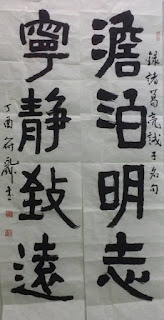 澹泊明志
寧静致遠
錄諸葛亮誡子名句
丁酉